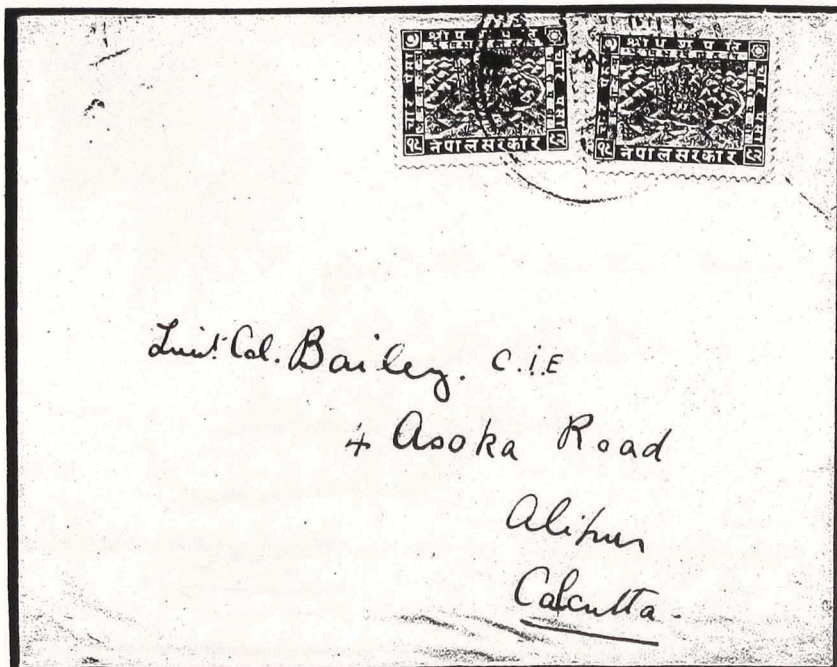 श्री पशुपति
नेपाल सरकार
श्री पशुपति
नेपाल सरकार
Lieut. Col. Bailey. C.I.E
4 Asoka Road
Alipur
Calcutta.